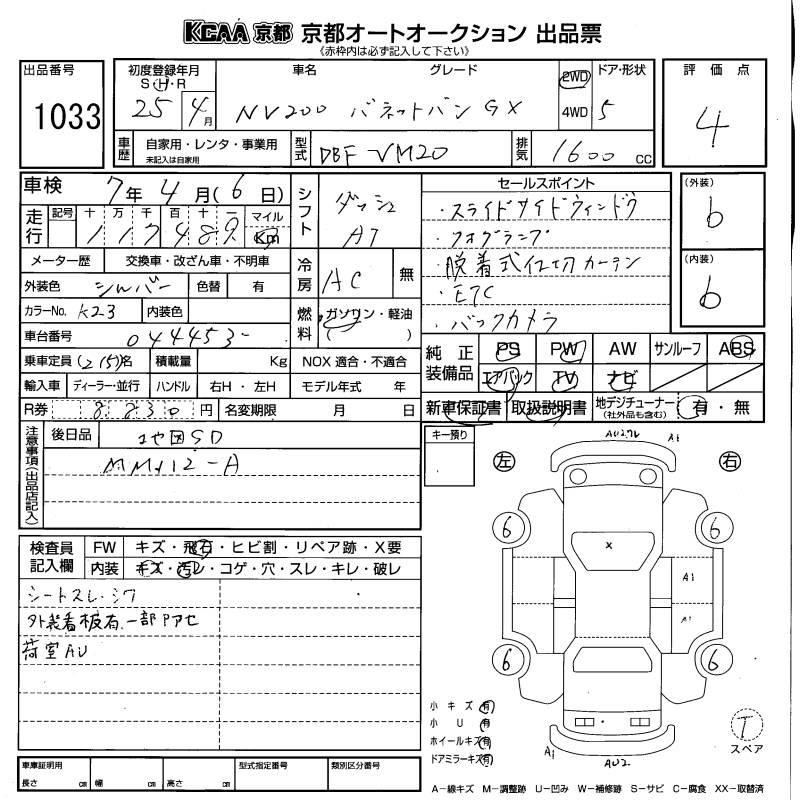 KCAA 京都 京都オートオークション 出品票
《赤枠内は必ず記入して下さい》
出品番号 1033
初度登録年月 S・H・R 25 4月
車名 グレード NV200 バネットバン GX
2WD 4WD
ドア・形状 5
評価点 4
車歴 自家用・レンタ・事業用
未記入は自家用
型式 DBF-VM20
排気 1600 CC
車検 7年 4月(6日)
走行 記号 十 万 千 百 十 一 マイル Km
117489
シフト ダッシュ AT
メーター歴 交換車・改ざん車・不明車
冷房 AC 無
外装色 シルバー 色替 有
カラーNo. K23 内装色
燃料 ガソリン・軽油 ( )
車台番号 044453-
乗車定員(2(5))名 積載量 Kg NOX 適合・不適合
輸入車 ディーラー・並行 ハンドル 右H・左H モデル年式 年
R券 8830円 名変期限 月 日
セールスポイント
・スライドサイドウィンドウ
・フォグランプ
・脱着式仕切カーテン
・ETC
・バックカメラ
(外装) b
(内装) b
純正装備品 PS PW AW サンルーフ ABS
エアバック TV ナビ
新車保証書 取扱説明書 地デジチューナー (社外品も含む) 有・無
注意事項(出品店記入)
後日品 地図SD
MM112-A
キー預り
検査員記入欄
FW キズ・飛石・ヒビ割・リペア跡・X要
内装 キズ・汚レ・コゲ・穴・スレ・キレ・破レ
シートスレ・シワ
外装看板有、一部Pアセ
荷室AU
左 右
A1
6 6
X
A1
A1
6 6
小キズ(有)
小U(有)
ホイールキズ(有)
ドアミラーキズ(有)
A1 AU2
T スペア
車庫証明用 長さ cm 幅 cm 高さ cm
型式指定番号 類別区分番号
A−線キズ M−調整跡 U−凹み W−補修跡 S−サビ C−腐食 XX−取替済